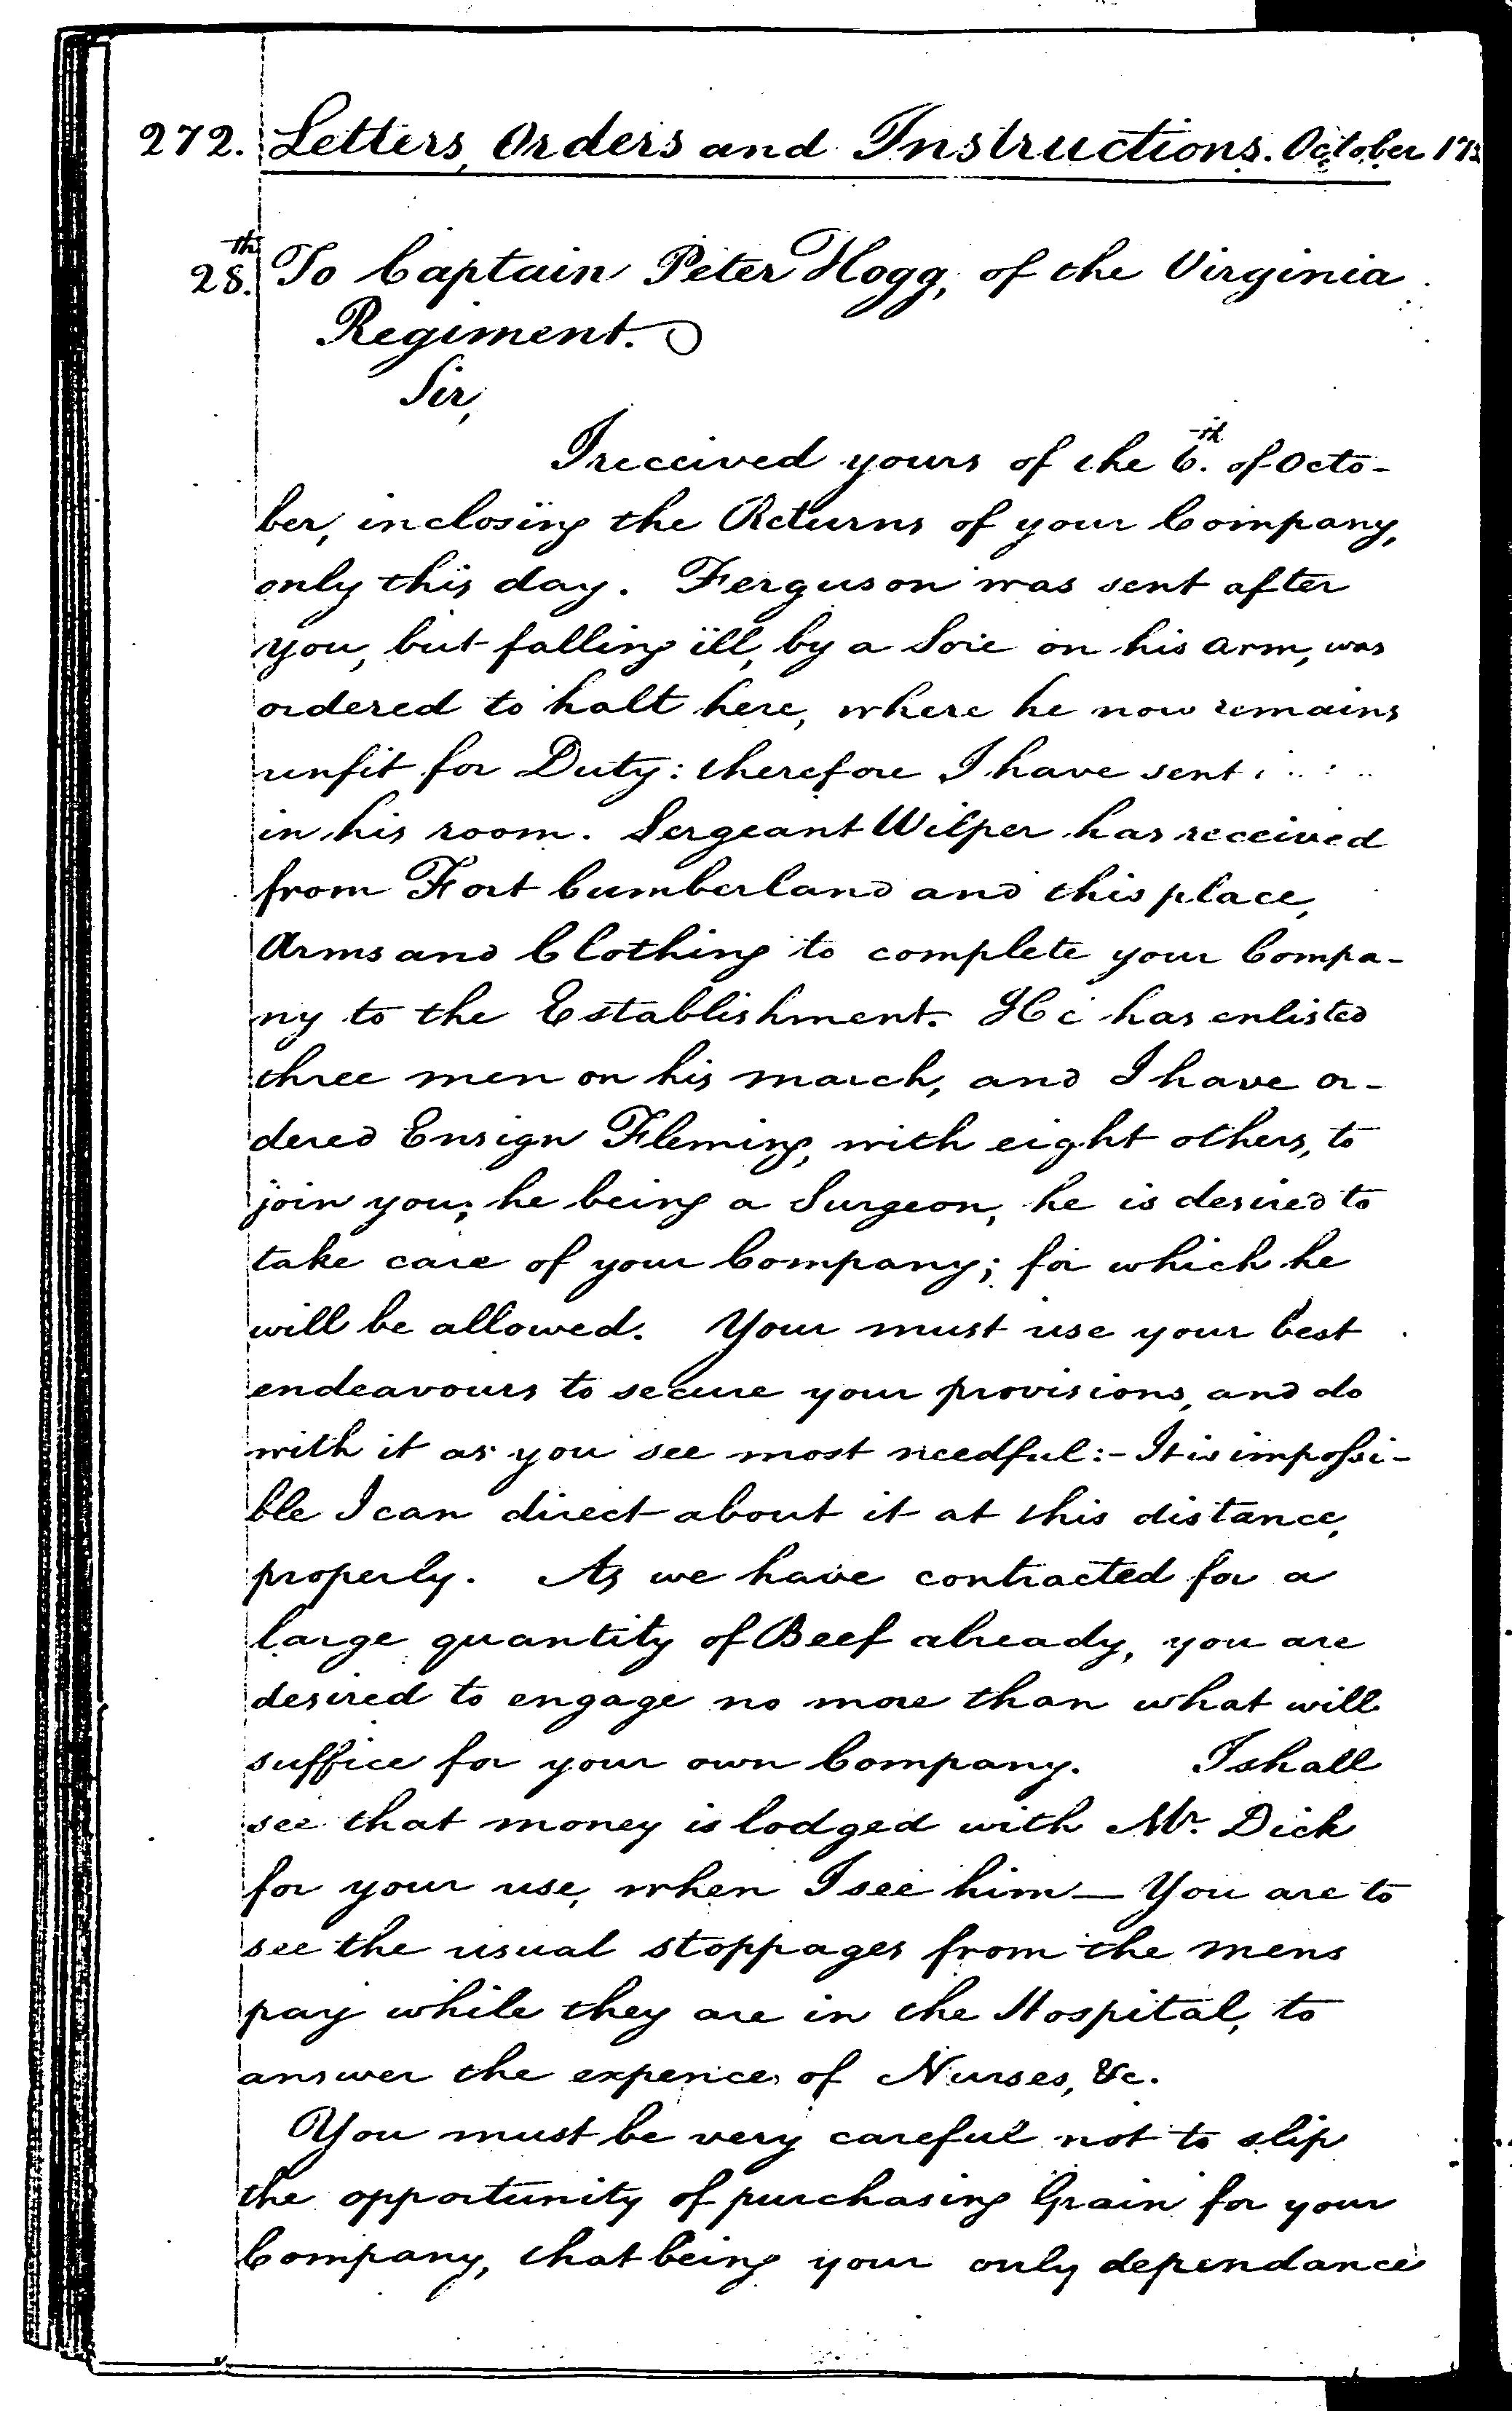 272. Letters, Orders and Instructions. October 175
28.th To Captain Peter Hogg, of the Virginia
Regiment.
Sir,
I received yours of the 6.th of Octo-
ber, inclosing the Returns of your Company,
only this day. Ferguson was sent after
you, but falling ill, by a Sore on his arm, was
ordered to halt here, where he now remains
unfit for Duty: therefore I have sent
in his room. Sergeant Wilper has received
from Fort Cumberland and this place,
Arms and Clothing to complete your Compa-
ny to the Establishment. He has enlisted
three men on his march, and I have or-
dered Ensign Fleming, with eight others, to
join you; he being a Surgeon, he is desired to
take care of your Company; for which he
will be allowed. Your must use your best
endeavours to secure your provisions, and do
with it as you see most needful:- It is impossi-
ble I can direct about it at this distance,
properly. As we have contracted for a
large quantity of Beef already, you are
desired to engage no more than what will
suffice for your own Company. I shall
see that money is lodged with Mr. Dick
for your use, when I see him — You are to
see the usual stoppages from the mens
pay while they are in the Hospital, to
answer the expence of Nurses, &c.
You must be very careful not to slip
the opportunity of purchasing Grain for your
Company, that being your only dependance